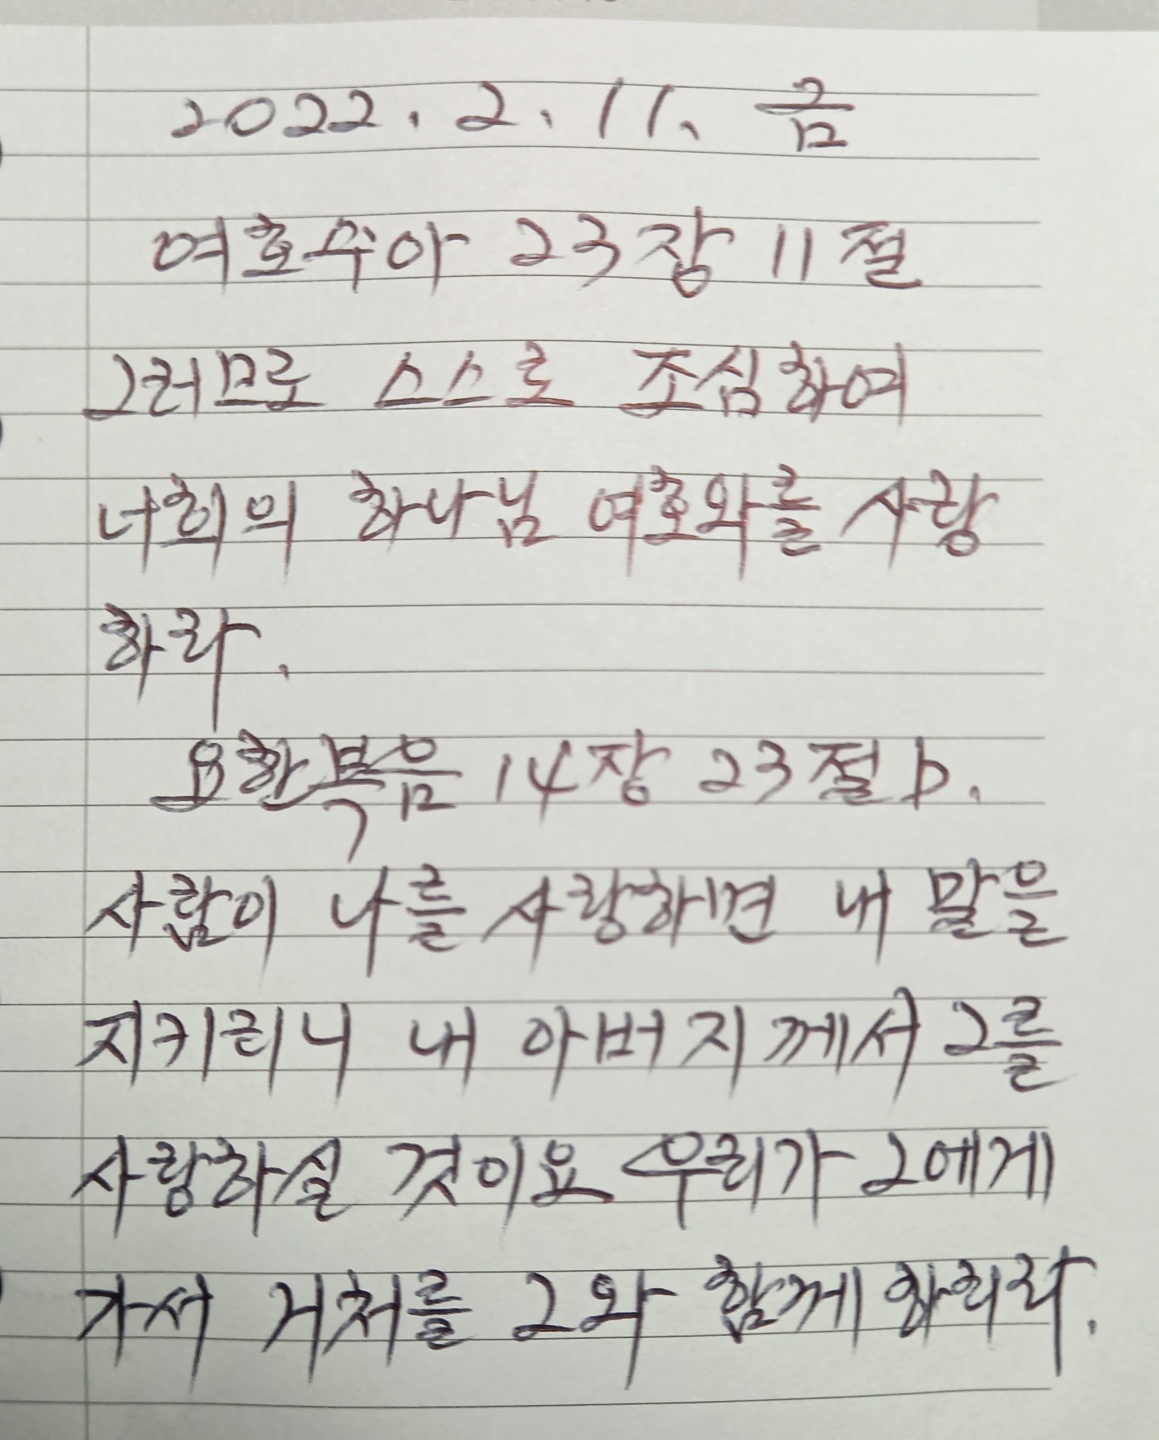 2022. 2. 11. 금
여호수아 23장 11절
그러므로 스스로 조심하여
너희의 하나님 여호와를 사랑
하라.
요한복음 14장 23절 b.
사람이 나를 사랑하면 내 말을
지키리니 내 아버지께서 그를
사랑하실 것이요 우리가 그에게
가서 거처를 그와 함께 하리라.